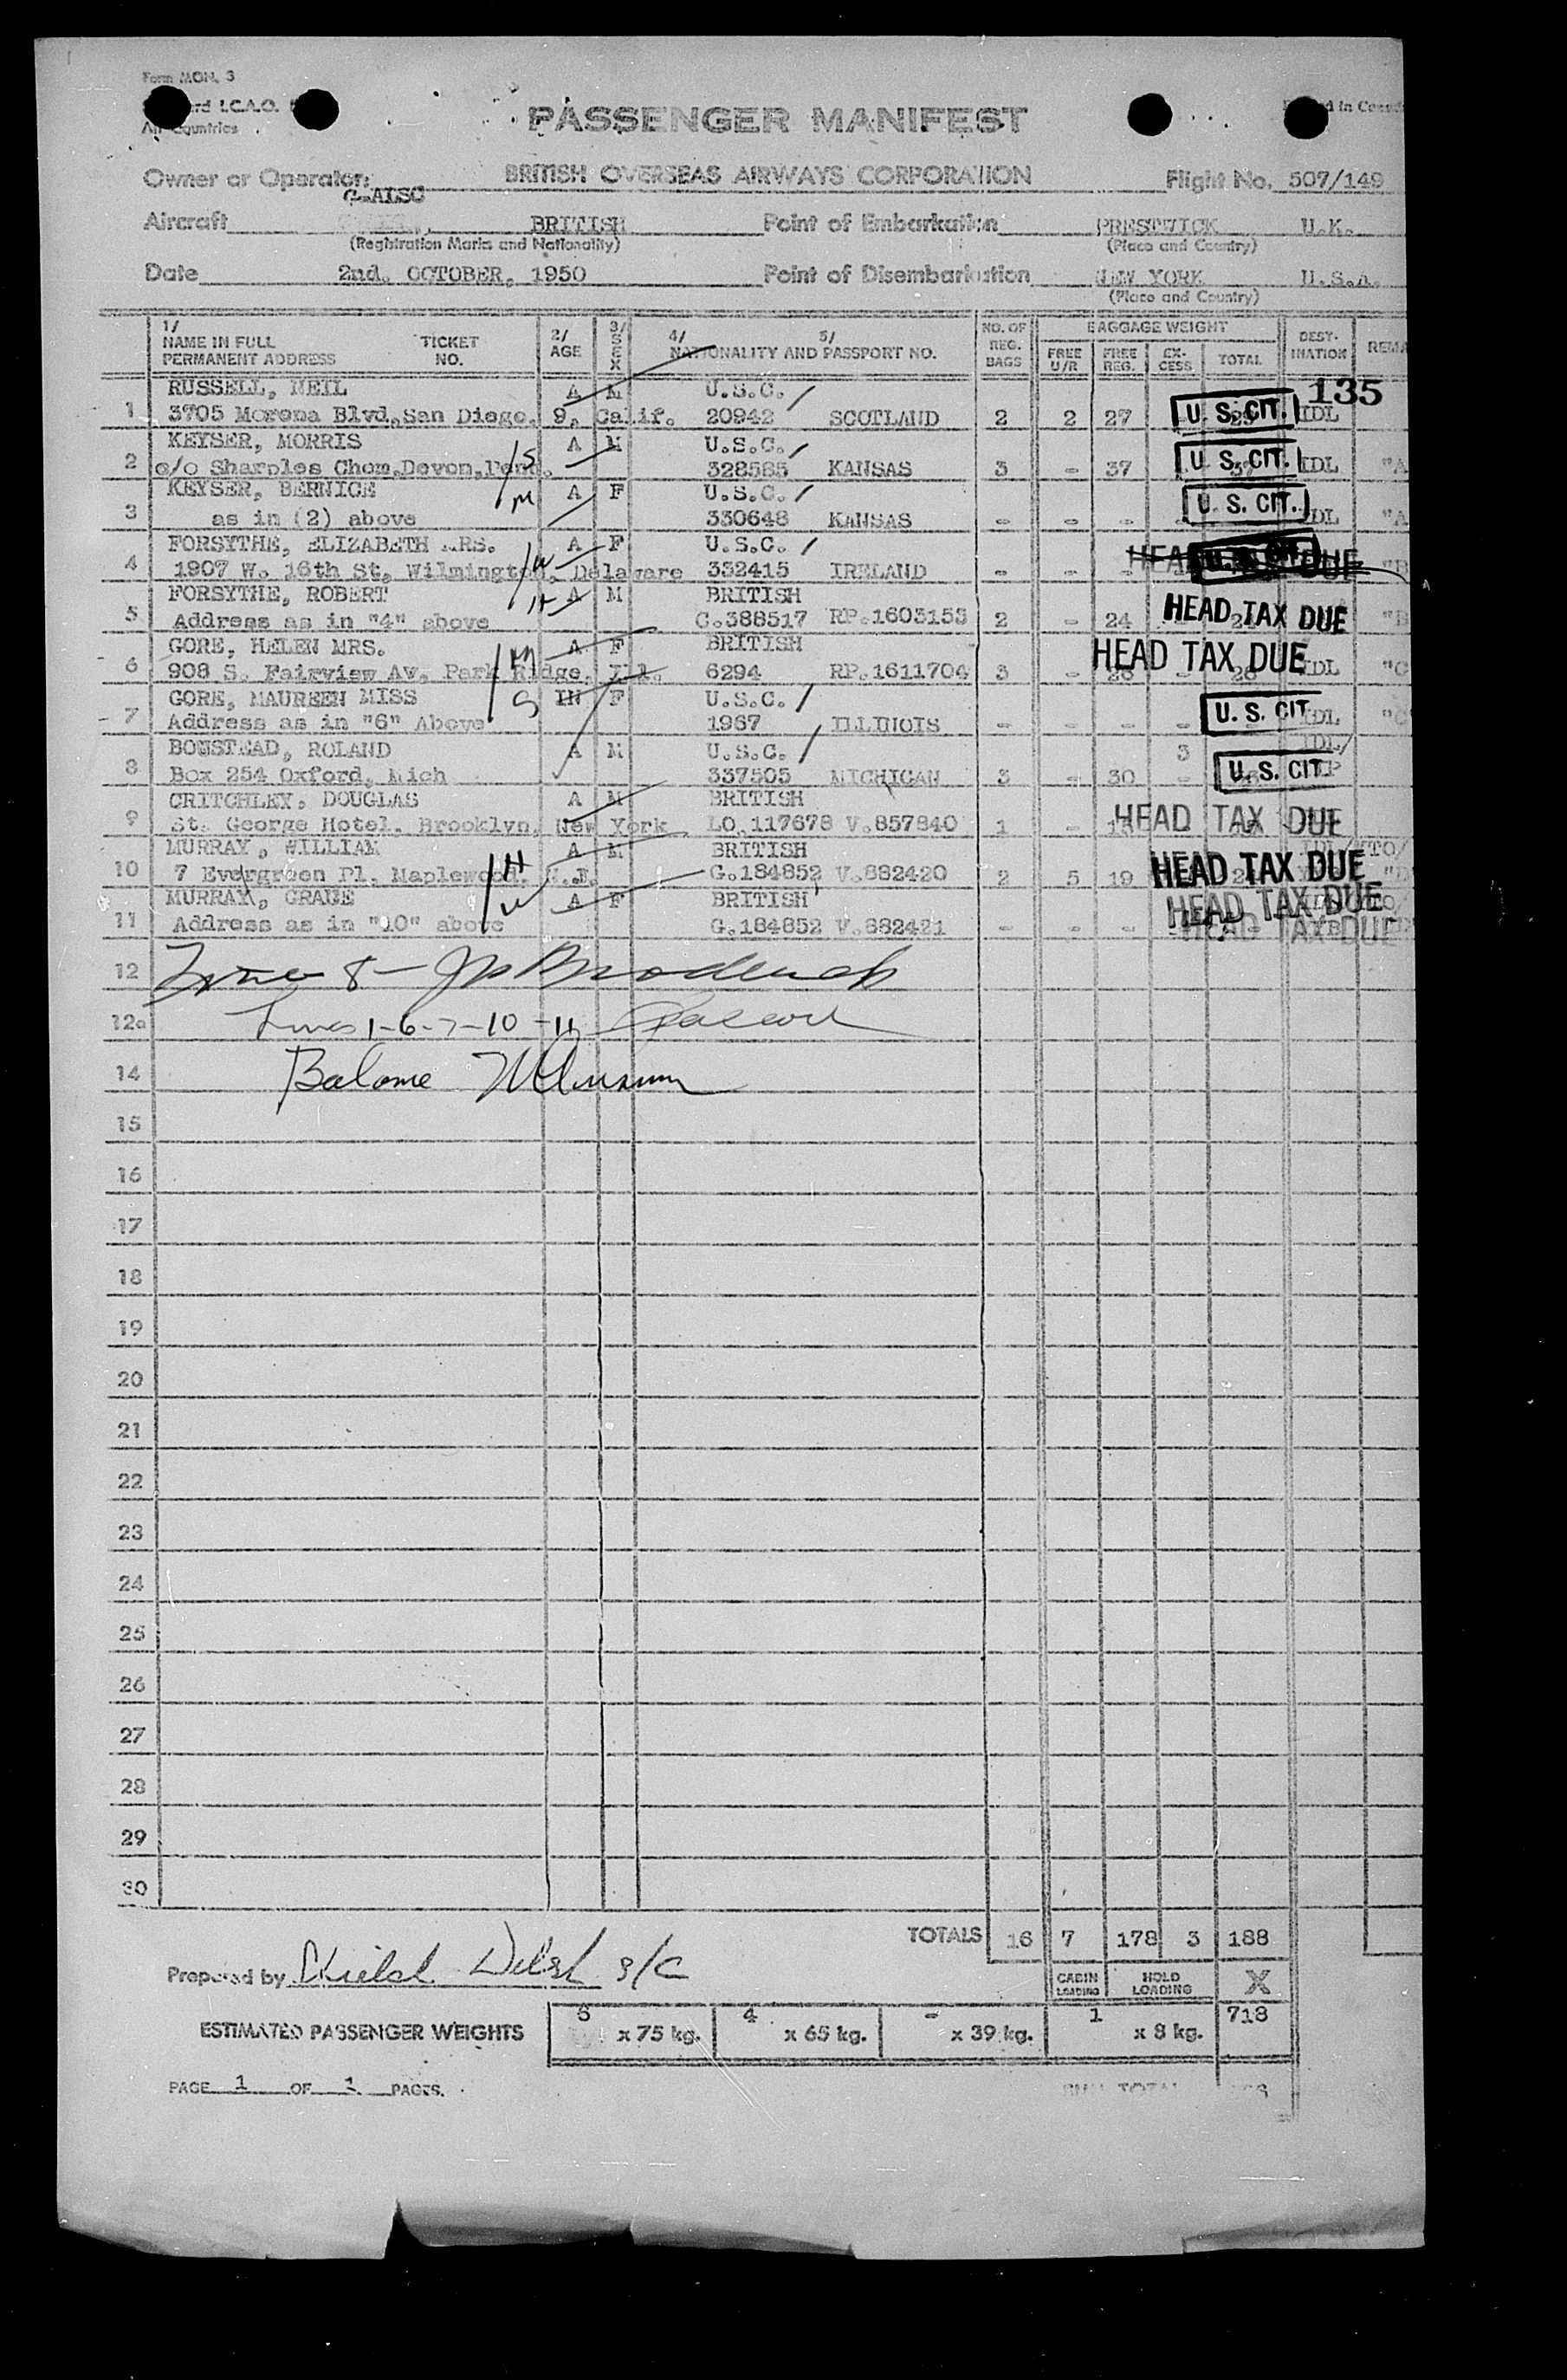 Form MON. 3
I.C.A.O.
PASSENGER MANIFEST
in
Owner or Operator: BRITISH OVERSEAS AIRWAYS CORPORATION Flight No. 507/149
Aircraft BRITISH Point of Embarkation PRESTWICK U.K.
(Registration Marks and Nationality) (Place and Country)
Date 2nd. OCTOBER, 1950 Point of Disembarkation NEW YORK U.S.A.
(Place and Country)
1/ NAME IN FULL PERMANENT ADDRESS TICKET NO. 2/ AGE 3/ SEX 4/ 5/ NATIONALITY AND PASSPORT NO. NO. OF REG. BAGS BAGGAGE WEIGHT FREE U/R FREE REG. EX-CESS TOTAL DEST-INATION
135
RUSSELL, NEIL A M U.S.C.
1 3705 Morena Blvd, San Diego, 9, Calif. 20942 SCOTLAND 2 2 27 U. S. CIT. IDL
KEYSER, MORRIS A M U.S.C.
2 c/o Sharples Chem, Devon, S 328585 KANSAS 3 - 37 U. S. CIT. IDL "A
KEYSER, BERNICE A F U.S.C.
3 as in (2) above M 330648 KANSAS - - - U. S. CIT. IDL "A
FORSYTHE, ELIZABETH MRS. A F U.S.C.
4 1907 W. 16th St, Wilmington, Delaware W 332415 IRELAND - - - HEAD TAX DUE "B
FORSYTHE, ROBERT A M BRITISH
5 Address as in "4" above H C.388517 RP.1603153 2 - 24 HEAD TAX DUE "B
GORE, HELEN MRS. A F BRITISH
6 908 S. Fairview Av, Park Ridge, Ill. M 6294 RP.1611704 3 - HEAD TAX DUE IDL "C
GORE, MAUREEN MISS IN F U.S.C.
7 Address as in "6" Above S 1967 ILLINOIS - - - - U. S. CIT. IDL "C
BOWSTEAD, ROLAND A M U.S.C. 3 IDL/
8 Box 254 Oxford, Mich 337505 MICHIGAN 3 - 30 - U. S. CIT.
CRITCHLEY, DOUGLAS A M BRITISH
9 St. George Hotel, Brooklyn, New York LO.117678 V.857840 1 - HEAD TAX DUE
MURRAY, WILLIAM A M BRITISH
10 7 Evergreen Pl. Maplewood. N.J. H G.184852 V.882420 2 5 19 HEAD TAX DUE
MURRAY, GRACE A F BRITISH HEAD TAX DUE
11 Address as in "10" above W G.184852 V.882421 - - - HEAD TAX DUE
12 8 -
12a Lines 1-6-7-10-11
14 Balance
15
16
17
18
19
20
21
22
23
24
25
26
27
28
29
30
TOTALS 16 7 178 3 188
Prepared by Welsh
CABIN LOADING HOLD LOADING X
ESTIMATED PASSENGER WEIGHTS x 75 kg. 4 x 65 kg. - x 39 kg. 1 x 8 kg. 718
PAGE 1 OF 1 PAGES.
TOTAL